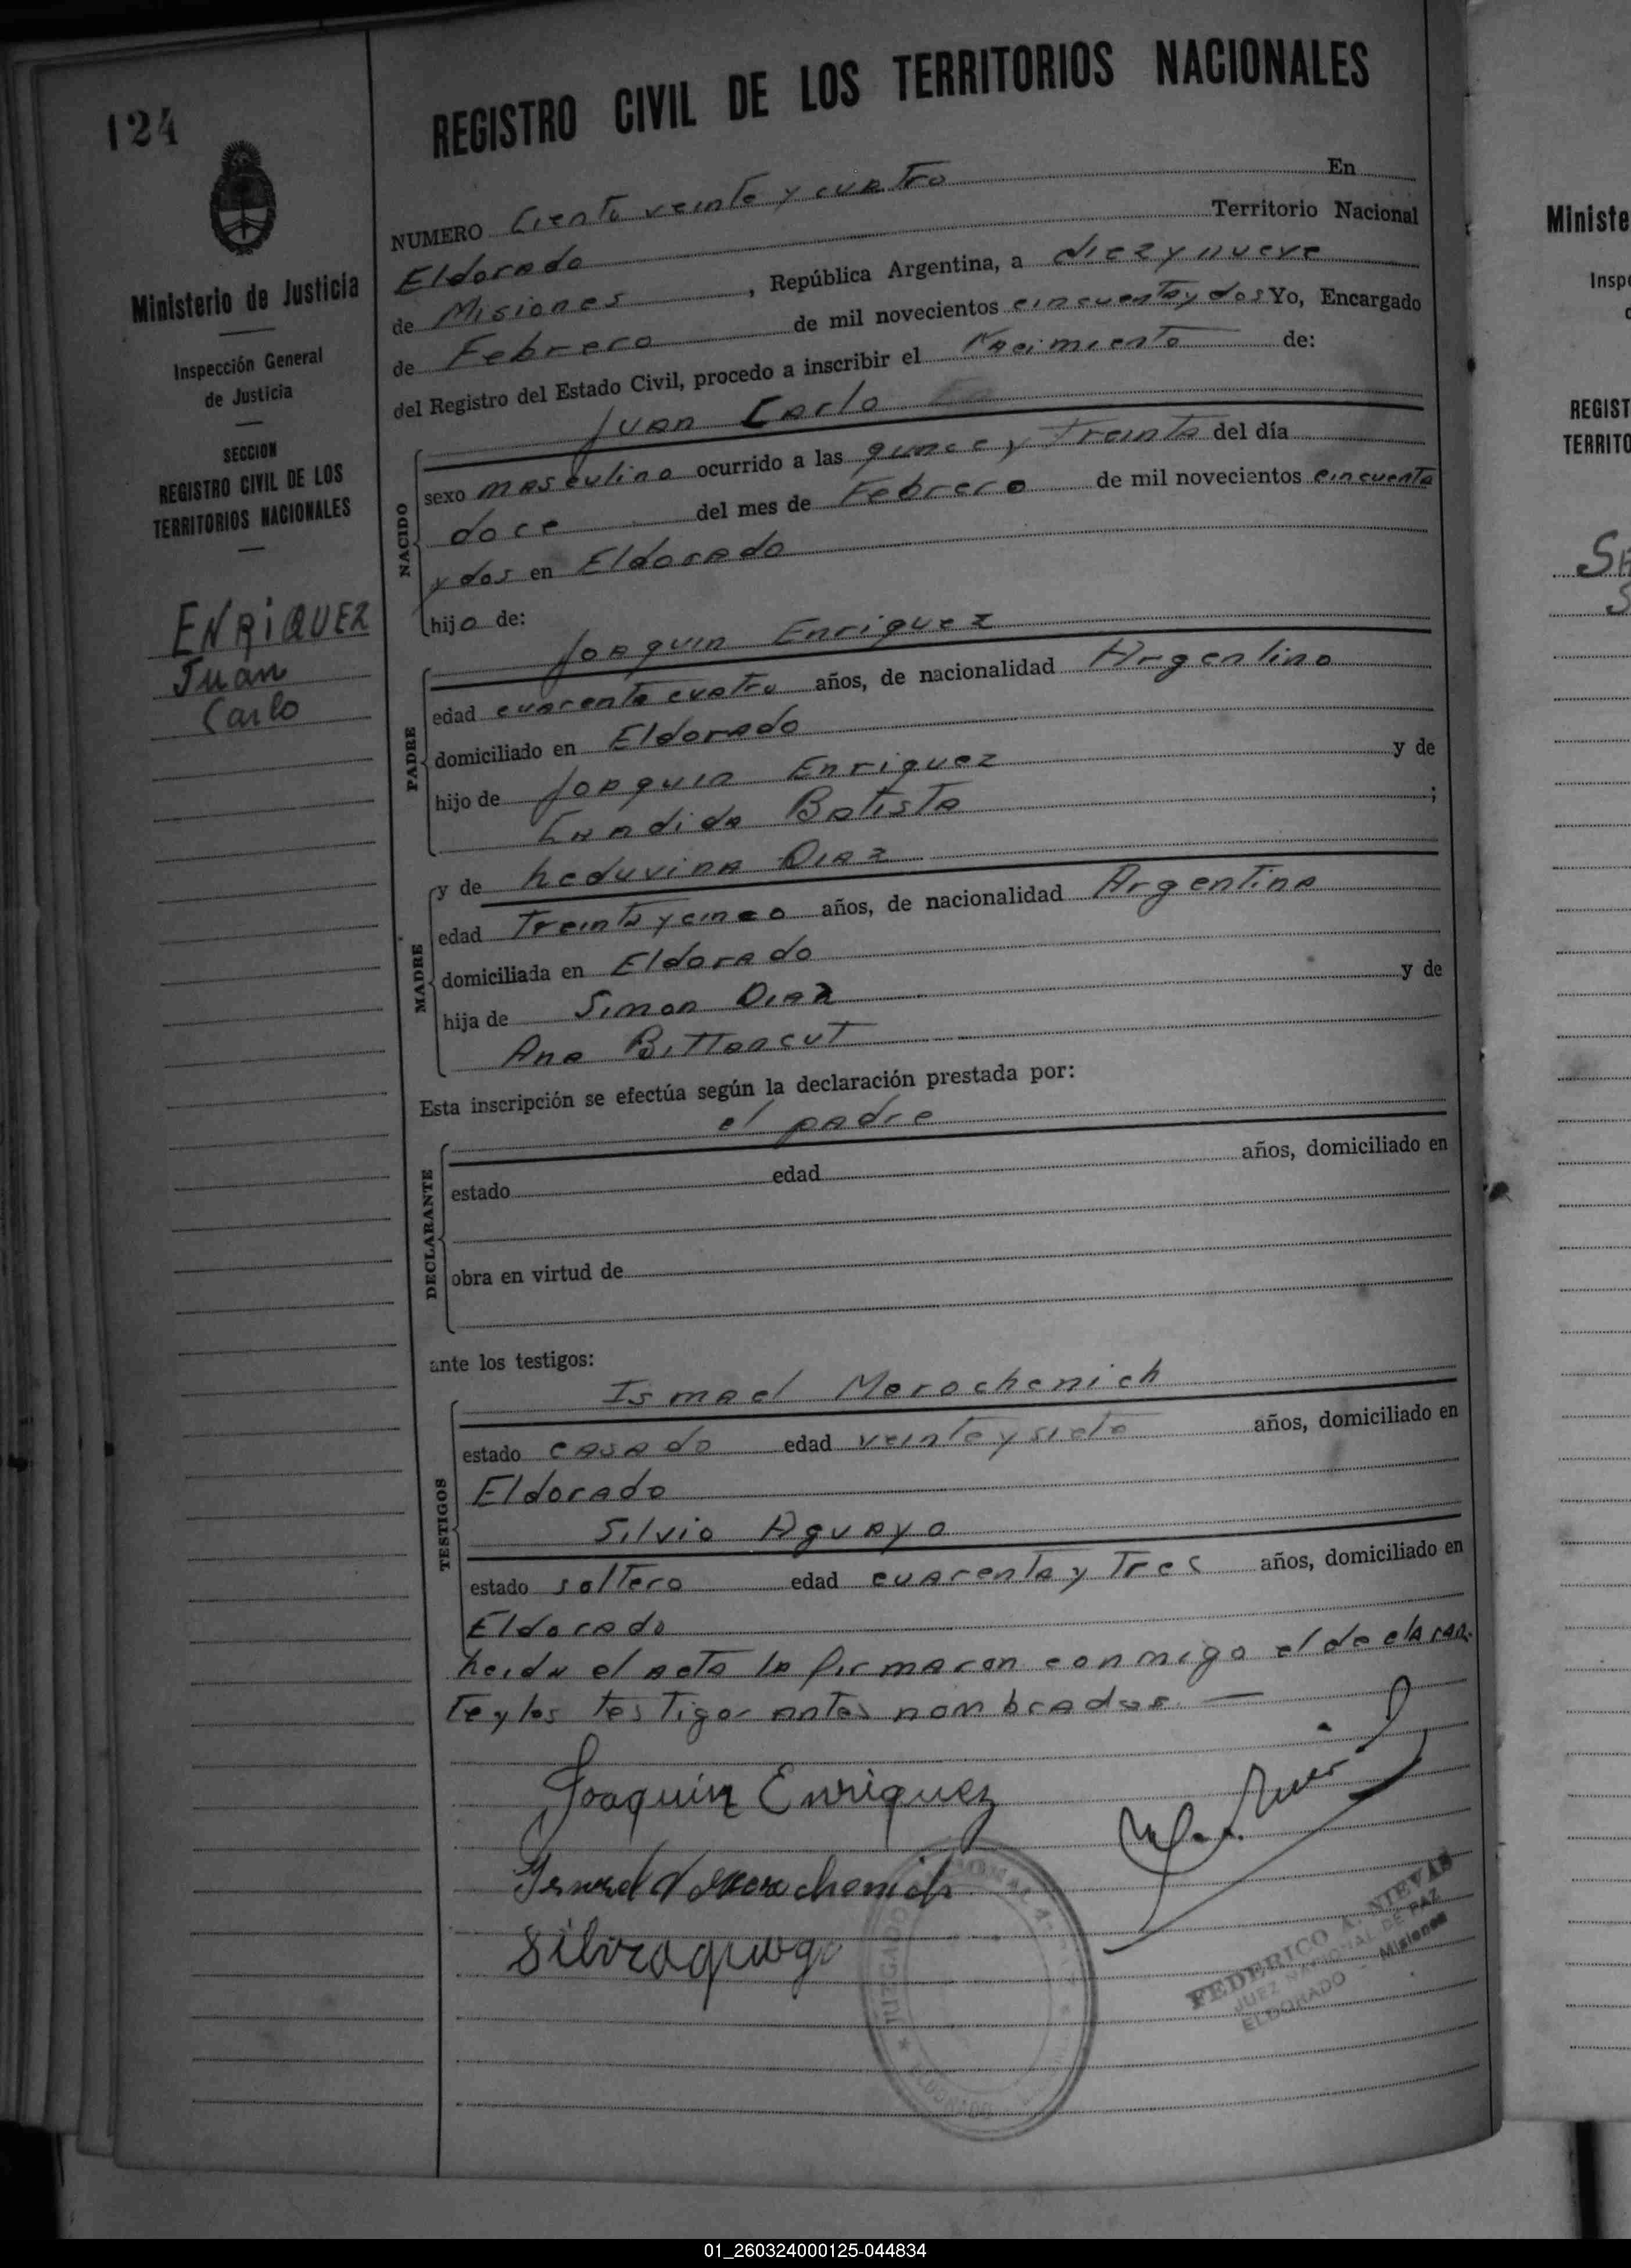 124
Ministerio de Justicia
Inspección General
de Justicia
SECCION
REGISTRO CIVIL DE LOS
TERRITORIOS NACIONALES
ENRiQUEZ
Juan
Carlo
REGISTRO CIVIL DE LOS TERRITORIOS NACIONALES
NUMERO Ciento veinte y cuatro En
Eldorado Territorio Nacional
de Misiones, República Argentina, a diez y nueve
de Febrero de mil novecientos cincuenta y dos Yo, Encargado
del Registro del Estado Civil, procedo a inscribir el Nacimiento de:
NACIDO
Juan Carlo
sexo masculino ocurrido a las quince y treinta del día
doce del mes de Febrero de mil novecientos cincuenta
y dos en Eldorado
hijo de:
PADRE
Joaquin Enriquez
edad cuarenta cuatro años, de nacionalidad Argentino
domiciliado en Eldorado
hijo de Joaquin Enriquez y de
Candida Batista ;
MADRE
y de Leduvina Diaz
edad Treinta y cinco años, de nacionalidad Argentina
domiciliada en Eldorado
hija de Simon Diaz y de
Ana Bittancut
Esta inscripción se efectúa según la declaración prestada por:
DECLARANTE
el padre
estado edad años, domiciliado en
obra en virtud de
ante los testigos:
TESTIGOS
Ismael Morochenich
estado casado edad veinte y siete años, domiciliado en
Eldorado
Silvio Aguayo
estado soltero edad cuarenta y Tres años, domiciliado en
Eldorado
Leida el acta la firmaron conmigo el declaran
te y los testigos antes nombrados. —
Joaquín Enriquez
FEDERICO A. NIEVAS
JUEZ NACIONAL DE PAZ
ELDORADO - Misiones
JUZGADO
Ministe
Inspe
REGIST
TERRITO
01_260324000125-044834